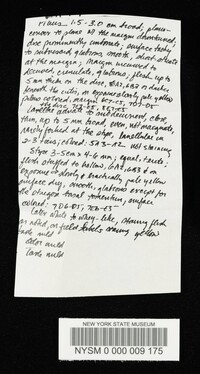 Pileus 1.5-3.0 cm broad, plano-
convex to plane all the margin downturned,
disc prominently umbonate, surface tacky
to subviscid glabrous smooth,
at the margin; margin incurved to
decurved, crenulate, glabrous, flesh up to
5 mm thick on the disc,
beneath the cutis, on exposure slowly pale yellow
colored; margin
Lamellae adnate to subdecurrent, close,
thin, up to 5 mm broad, even, not marginate,
rarely forked at the stipe, lamellulae in
2-3 tiers; colored: 5A3-A2 not staining
Stipe 3-5 cm x 4-6 mm, equal, terete,
flesh stuffed to hollow,
exposure slowly & erratically pale yellow
surface dry, smooth, glabrous except for
the strigose basal tomentum, surface
colored: 7D6-D5, 7C6-E5
Latex white to whey-like, staining flesh
as noted, on field labels staining yellow
taste mild
odor mild
taste mild
NEW YORK STATE MUSEUM
NYSM 0 000 009 175